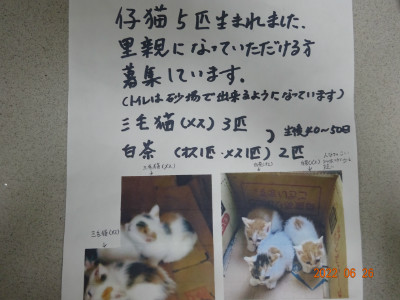 仔猫5匹生まれました.
里親になっていただける方
募集しています.
(トイレは砂場で出来るようになっています)
三毛猫(メス) 3匹
生後40~50日
白茶 (オス1匹・メス1匹) 2匹
三毛猫(メス)
三毛猫(メス)
2022 06 24